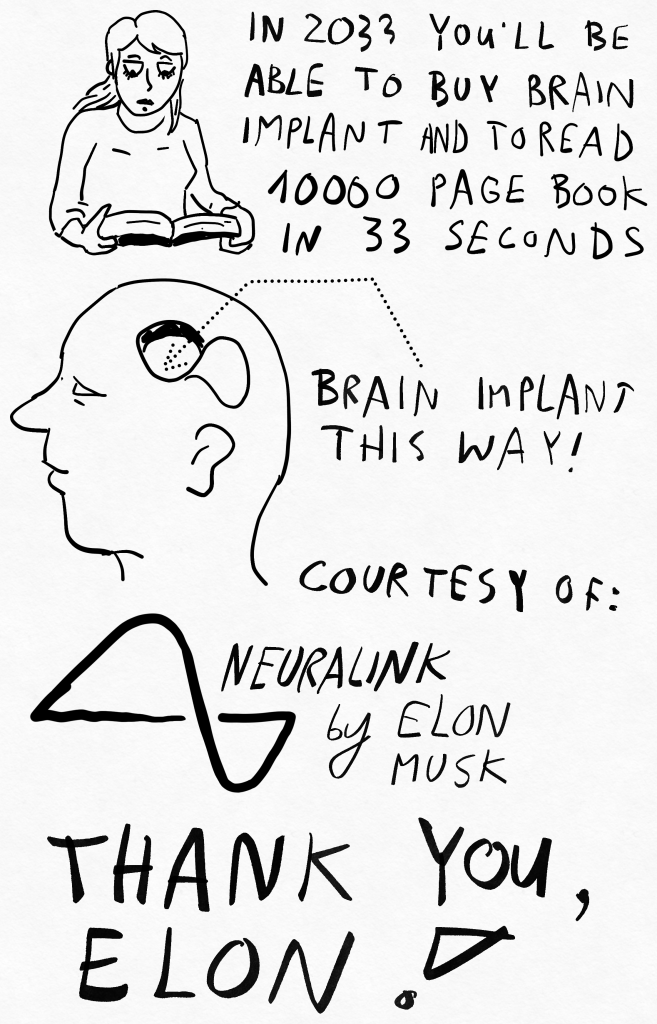 IN 2033 YOU'LL BE
ABLE TO BUY BRAIN
IMPLANT AND TO READ
10000 PAGE BOOK
IN 33 SECONDS
BRAIN IMPLANT
THIS WAY!
COURTESY OF:
NEURALINK
by ELON
MUSK
THANK YOU,
ELON!